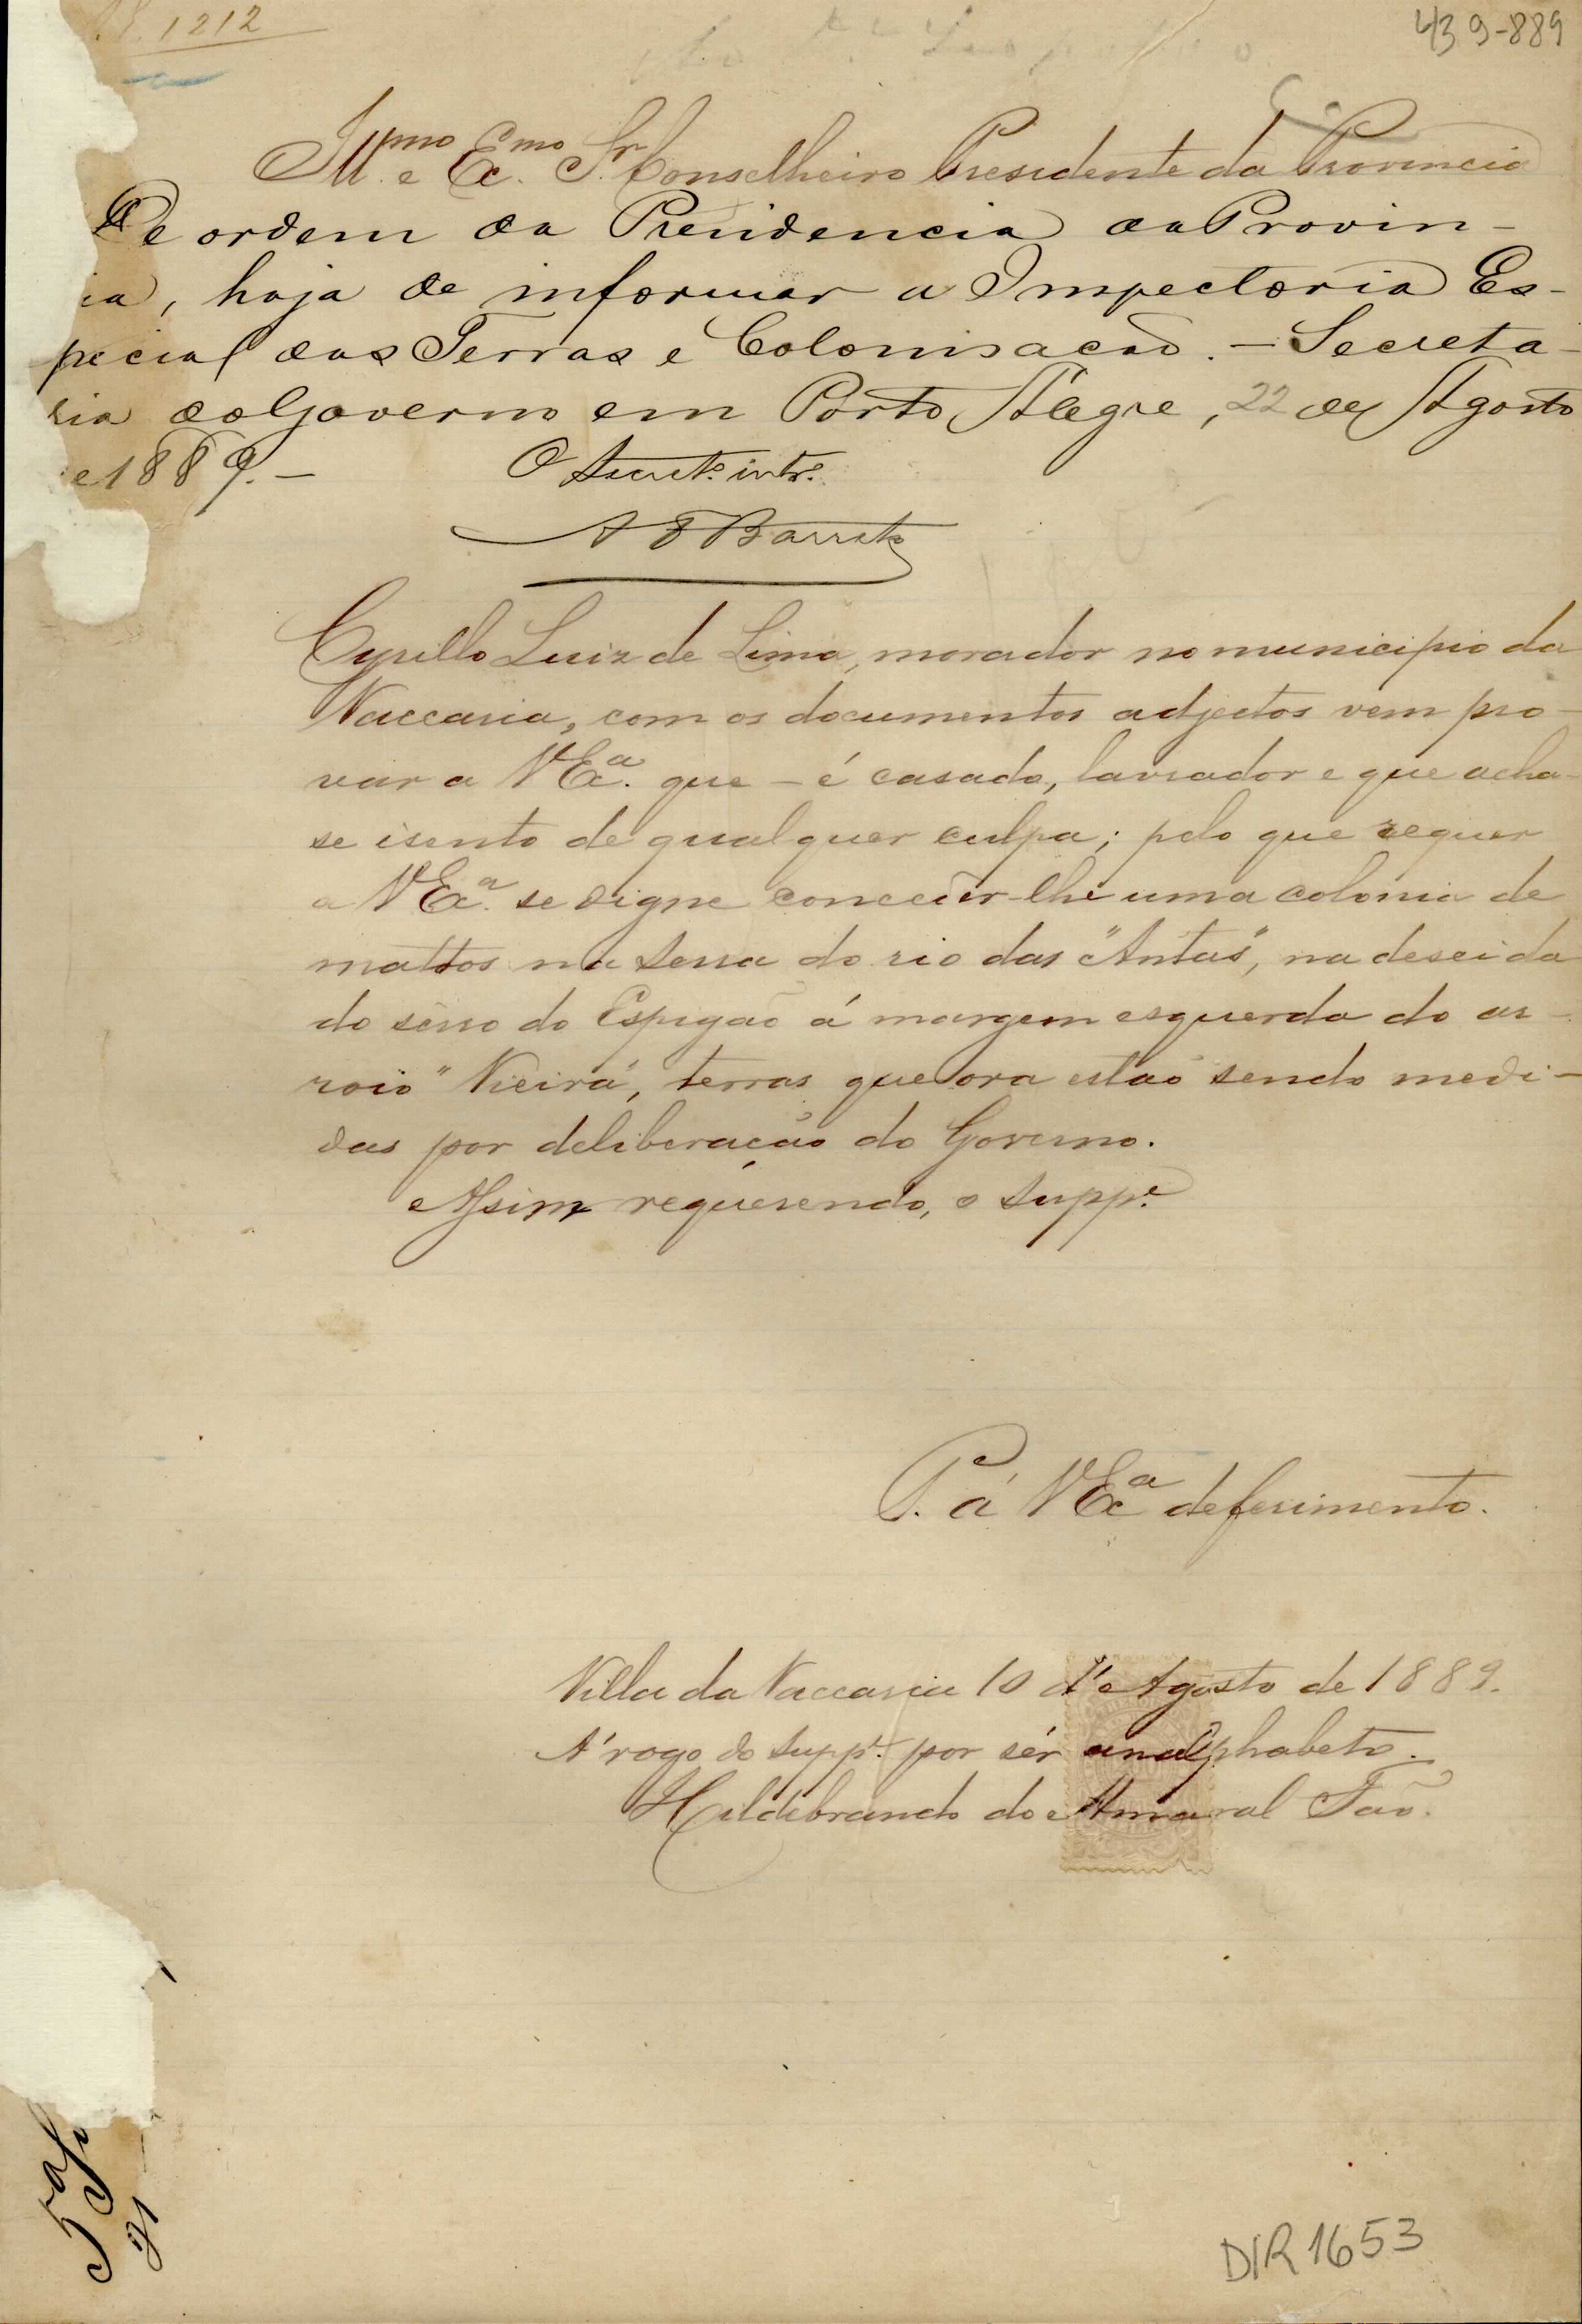 1212
439-889
Illmo e Exmo Sr. Conselheiro Presidente da Provincia
De ordem da Presidencia da Provin-
ia, haja de informar a Inspectoria Es-
pecial das Terras e Colonisacão. - Secreta-
ria do Governo em Porto Alegre, 22 de Agosto
e 1889. -
O Secreto. into.
A F Barreto
Cyrillo Luiz de Lima, morador no municipio da
Vaccaria, com os documentos adjectos vem pro-
var a V Exa. que - é casado, lavrador e que acha-
se isento de qualquer culpa; pelo que requer
a V Exa. se digne conceder-lhe uma colonia de
mattos na serra do rio das "Antas", na descida
do serro do Espigão á margem esquerda do ar-
roio "Vieira", terras que ora estão sendo medi-
das por deliberação do Governo.
Assim requerendo, o suppe.
P. á V Exa deferimento.
Villa da Vaccaria 10 d'Agosto de 1889.
A' rogo do suppe. por sér analphabeto.
Hildebrando do Amaral Fão.
DIR 1653